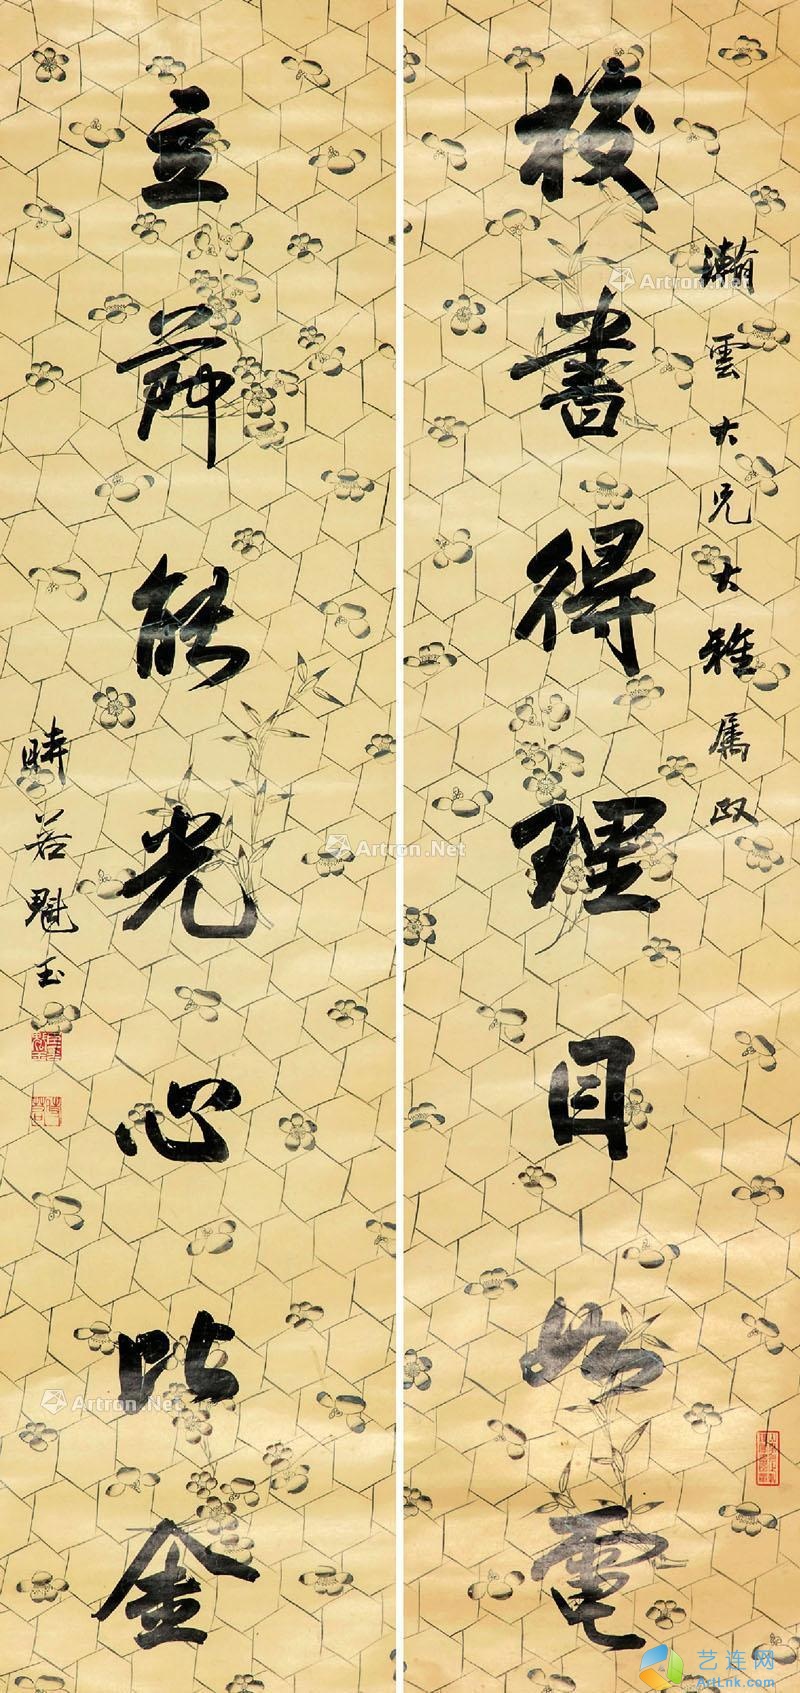 瀚雲大兄大雅属政
校書得理目如電
立辭能光心比金
時若魁玉
Artron.Net
Artron.Net
Artron.Net
Artron.Net
艺连网
ArtLnk.com